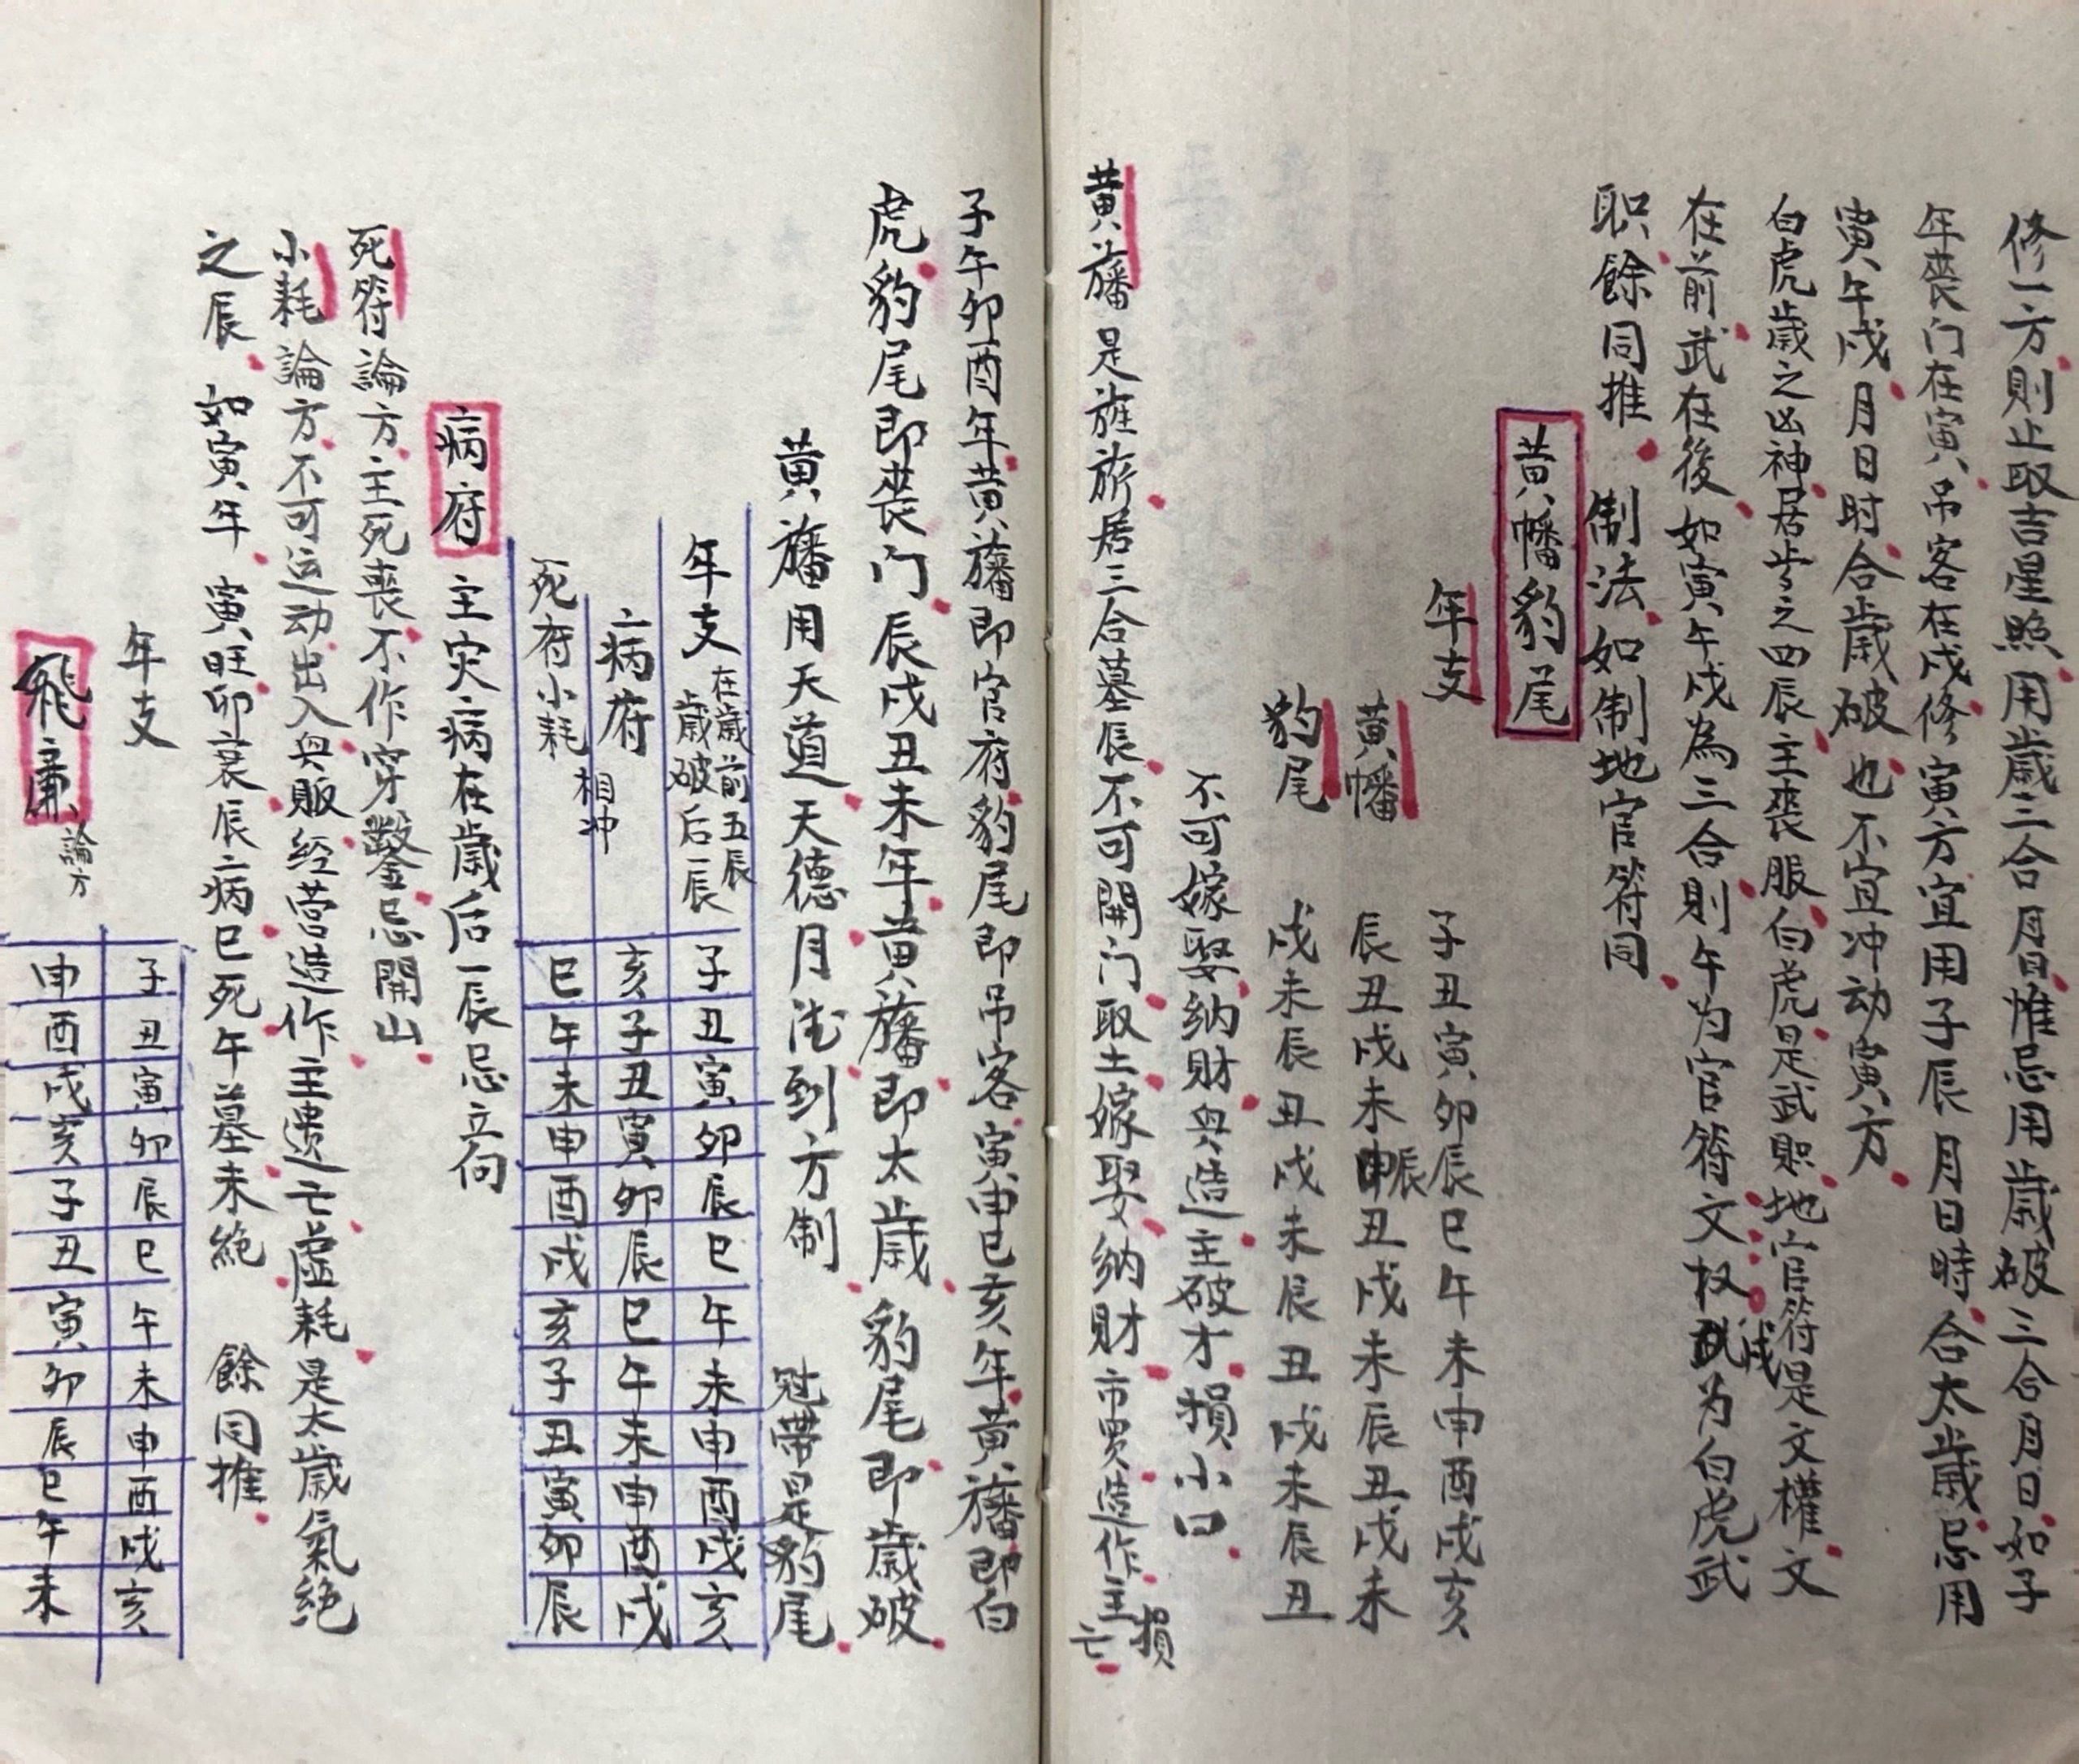 修一方則止取吉星照用歲三合月日惟忌用歲破三合月日如子
年丧门在寅吊客在戌修寅方宜用子辰月日時合太歲忌用
寅午戌月日时合歲破也不宜冲动寅方
白虎歲之凶神居歩之四辰主丧服白虎是武职地官符是文權文
在前武在後如寅午戌為三合則午为官符文权戌为白虎武
职餘同推 制法如制地官符同
黄幡豹尾
年支 子丑寅卯辰巳午未申酉戌亥
黄幡 辰丑戌未辰丑戌未辰丑戌未
豹尾 戌未辰丑戌未辰丑戌未辰丑
不可嫁娶纳財與造主破才損小口
黄旛是旌旂居三合墓辰不可開门取土嫁娶纳財市買造作主損亡
子午卯酉年黄旛即官府豹尾即吊客寅申巳亥年黄旛即白
虎豹尾即丧门辰戌丑未年黄旛即太歲豹尾即歲破
黄旛用天道天德月德到方制 冠帶是豹尾
年支 在歲前五辰 歲破后一辰 子丑寅卯辰巳午未申酉戌亥
病府 亥子丑寅卯辰巳午未申酉戌
相冲
死府小耗 巳午未申酉戌亥子丑寅卯辰
病府 主灾病在歲后一辰忌立向
死符論方主死喪不作穿鑿忌開山
小耗論方不可运动出入與販经营造作主遗亡虛耗是太歲氣絕
之辰 如寅年 寅旺卯衰辰病巳死午墓未絕 餘同推
年支 子丑寅卯辰巳午未申酉戌亥
飛廉 論方 申酉戌亥子丑寅卯辰巳午未